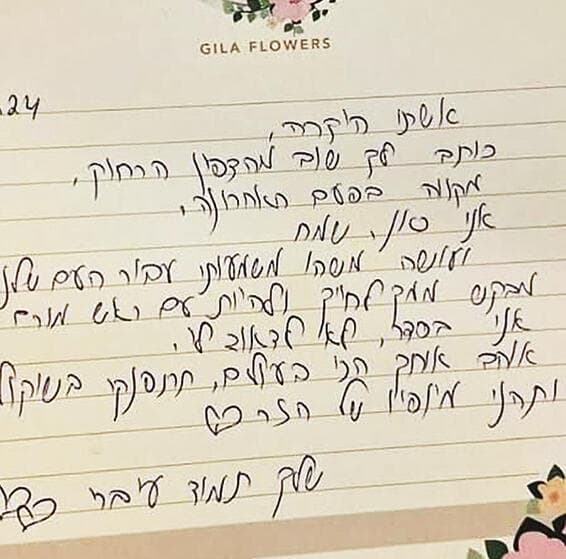 GILA FLOWERS
.24
אשתי היקרה,
כותב לך שוב מהצפון הרחוק,
מקווה בפעם האחרונה,
אני כאן, שמח
ועושה משהו משמעותי עבור העם שלנו
מבקש ממך לחייך ולהיות עם ראש מורם
אני בסדר, לא לדאוג לי.
אוהב אותך הכי בעולם, תתפנקי בשוקולד
ותהני מיופיו של הזר
שלך תמיד עברי